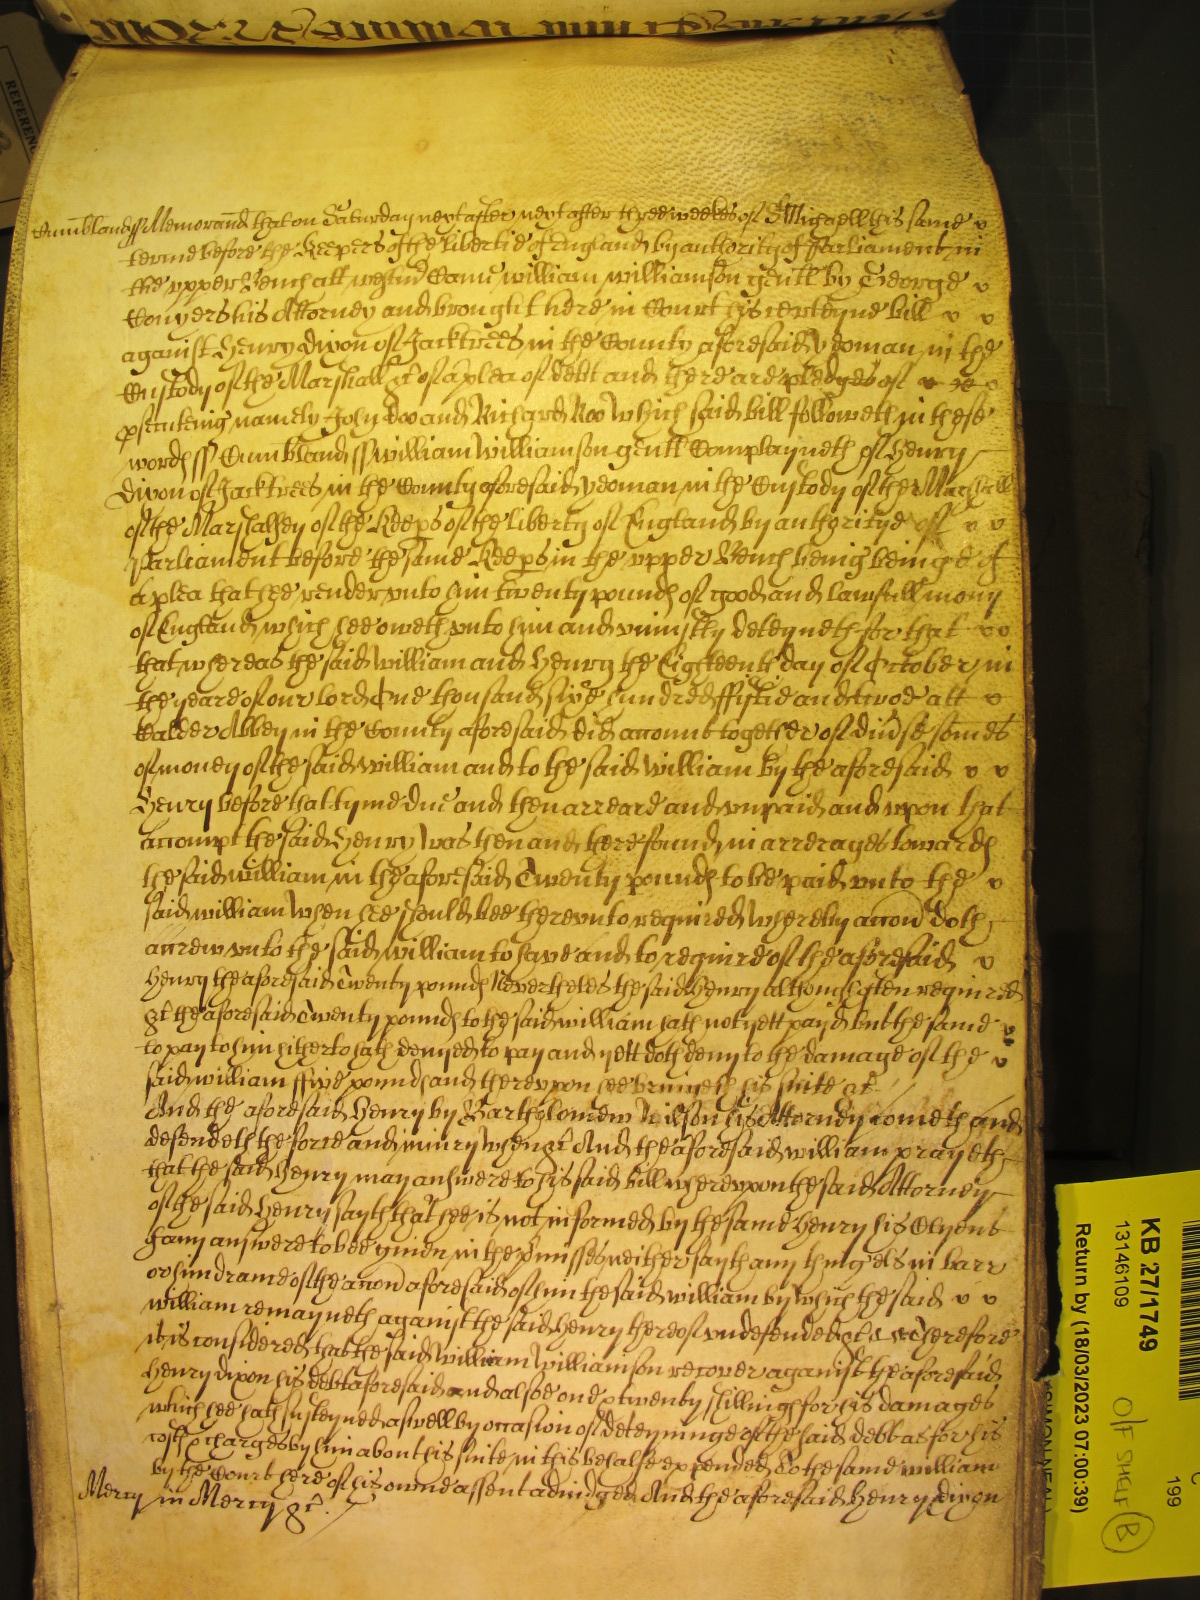 Cumbland ss Memorand that on Saturday next after next after three weekes of St Michaell this same
terme before the Keepers of the libertie of England by authority of Parliament in
the vpper Bench att westmr Came william williamson gentt by George
Conyers his Attorney and brought here in Court his certeyne bill
against Henry Dixon of Jacktrees in the County aforesaid yeoman in the
Custody of the Marshall &c of a plea of debt and there are pledges of
psecuting namely John Doo and Richard Roo Which said bill followeth in these
words ss Cumbland ss william Williamson gentt Complayneth of Henry
Dixon of Jacktrees in the County aforesaid yeoman in the Custody of the Marshall
of the Marshalsey of the Keeps of the liberty of England by authoritye of
Parliament before the same Keeps in the vpper Bench being beinge of
a plea that hee render vnto him twenty pounds of good and lawfull mony
of England which hee oweth vnto him and vniustly deteyneth for that
that whereas the said William and Henry the Eighteenth day of October in
the yeare of our lord One thousand sixe hundred ffiftie and twoe att
Calder Abbey in the County aforesaid did accounte together of diuse somes
of money of the said william and to the said William by the aforesaid
Henry before that tyme due and then arreare and vnpaid and vpon that
accompt the said Henry Was then and there found in arrerages towards
the said william in the aforesaid Twenty pounds to be paid vnto the
said william When hee should bee therevnto required whereby accon doth
accrew vnto the said william to have and to require of the aforesaid
Henry the aforesaid Twenty pounds Neverthelesse the said Henry although often required
&c the aforesaid Twenty pounds to the said william hath not yett payd but the same
to pay to him hitherto hath denyed to pay and yett doth deny to the damage of the
said william ffive pounds and therevpon hee bringeth his suite &c
And the aforesaid Henry by Bartholomew Wilson his Attorney cometh and
defendeth the force and iniury when &c And the aforesaid william prayeth
that the said Henry may answere to his said bill wherevpon the said Attorney
of the said Henry sayth that hee is not informed by the same Henry his Clyent
of any answere to bee given in the pmisses neither sayth any thing els in barr
or hindrance of the accon aforesaid of him the said william by which the said
william remayneth against the said Henry thereof vndefended &c Therefore
it is considered that the said William Williamson recover against the aforesaid
Henry Dixon his debt aforesaid and alsoe one & twenty shillings for his damages
which hee hath susteyned aswell by occasion of deteyninge of the said debt as for his
costs & charges by him about his suite in this behalfe expended To the same william
by the Court here of his owne assent adiudged And the aforesaid Henry Dixon
Mercy in Mercy &c
REFERENC
KB 27/1749
13146109
Return by (18/03/2023 07:00:39)
199
O/F SHELF B